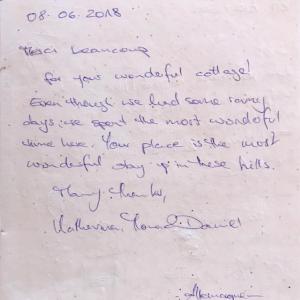 08.06.2018
Merci beaucoup
for your wonderful cottage!
Even though we had some rainy
days, we spent the most wonderful
time here. Your place is the most
wonderful stay up in these hills.
Many thanks,
Katherina, David
Allemagne